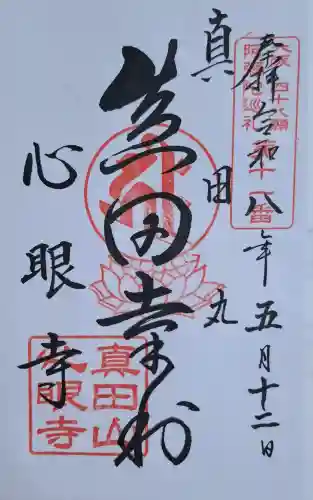 奉拝 令和八年五月十二日
大坂四十八願
阿弥陀巡礼
真田丸
真田幸村
心眼寺
真田山
心眼寺